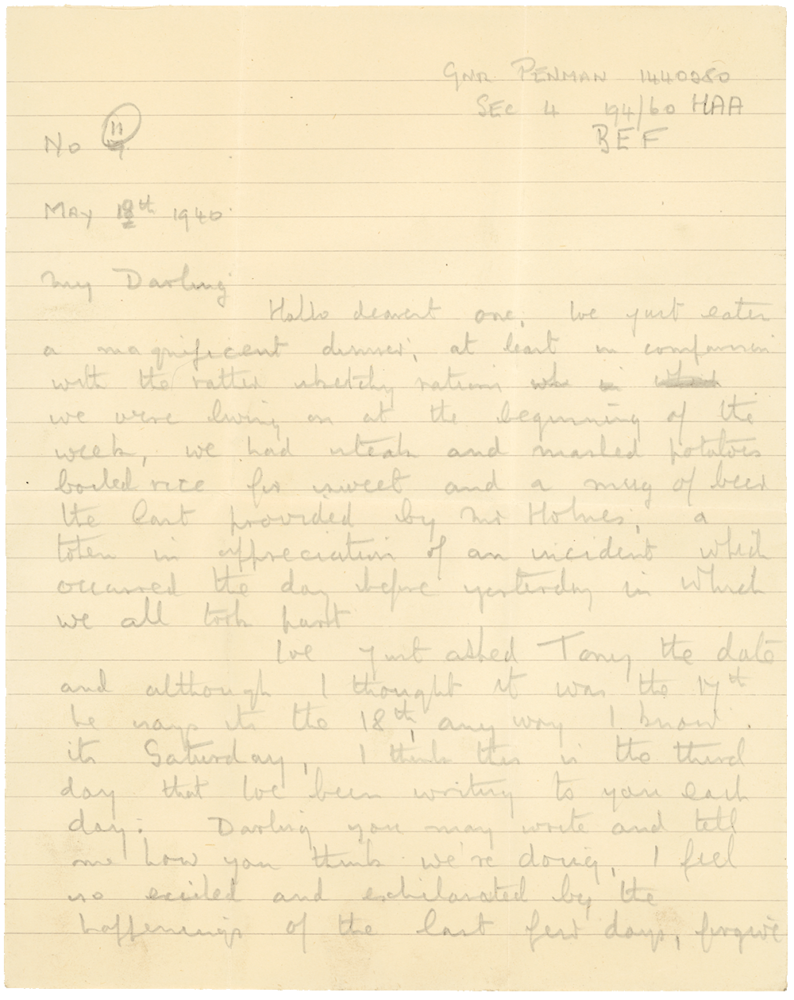 GNR PENMAN 1440050
SEC 4 194/60 HAA
BEF
No 11
MAY 18th 1940.
My Darling
Hallo dearest one, Ive just eaten
a magnificent dinner, at least in comparison
with the rather sketchy rations
we were living on at the beginning of the
week, we had steak and mashed potatoes
boiled rice for sweet and a mug of beer
the last provided by Mr Holmes, a
token in appreciation of an incident which
occurred the day before yesterday in which
we all took part
Ive just asked Tony the date
and although I thought it was the 17th
he says its the 18th, any way I know.
its Saturday, I think this is the third
day that Ive been writing to you each
day. Darling you may write and tell
me how you think we're doing, I feel
so excited and exhilarated by the
happenings of the last few days, forgive